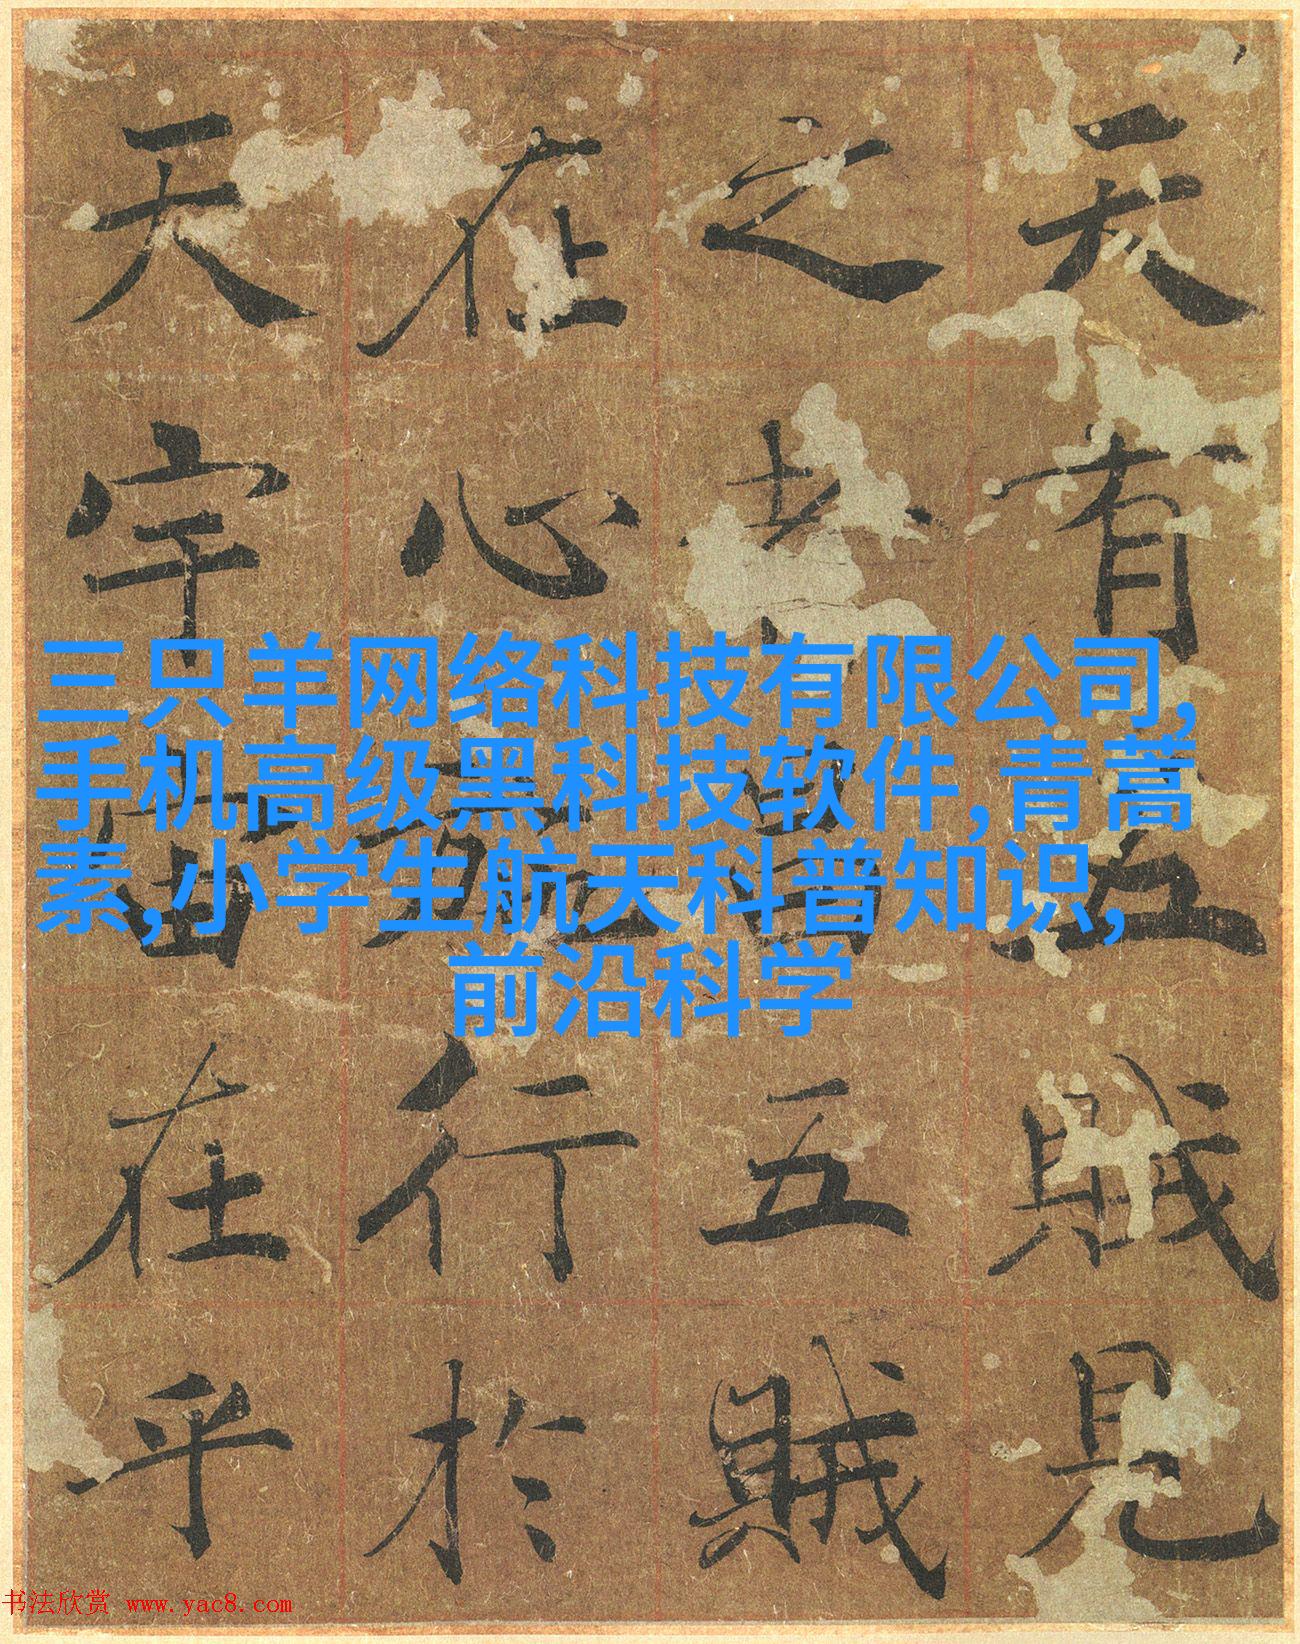 天有五賊見
之五賊
在心行於
天宇宙在乎
三只羊网络科技有限公司,
手机高级黑科技软件,青蒿
素,小学生航天科普知识,
前沿科学
书法欣赏 www.yac8.com